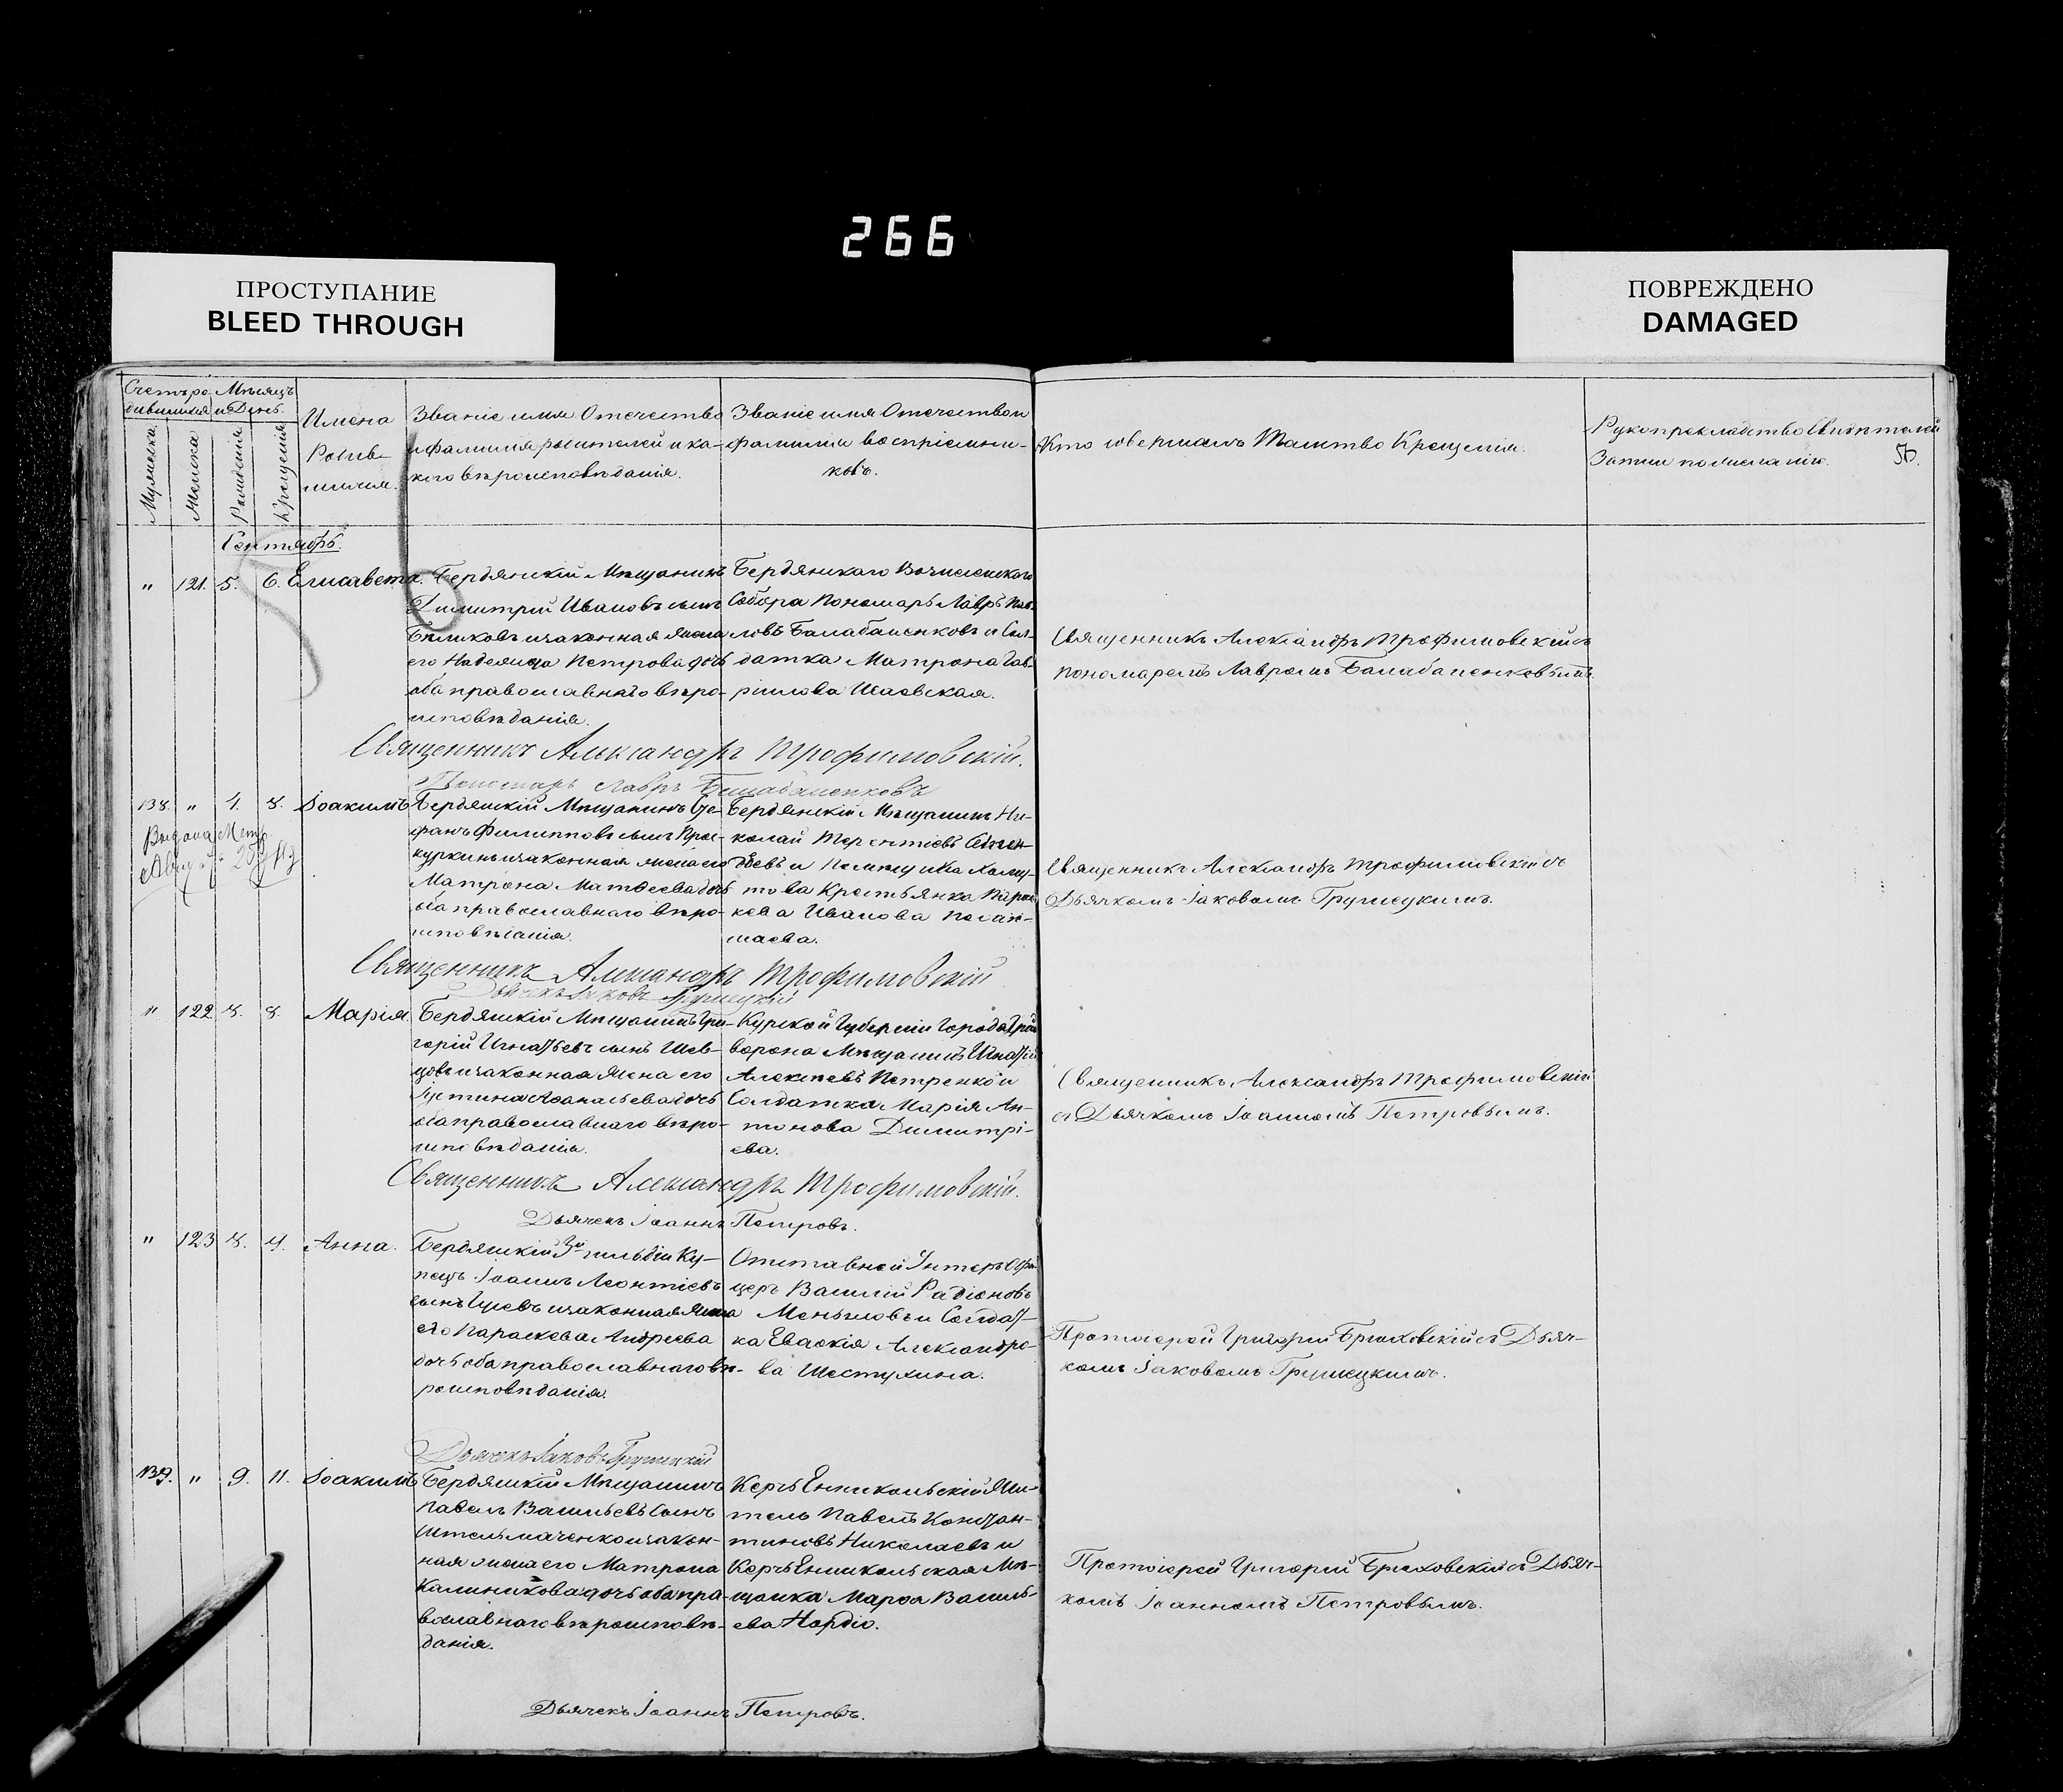 266
ПРОСТУПАНИЕ
BLEED THROUGH
ПОВРЕЖДЕНО
DAMAGED
Счетъ ро- Мѣсяцъ
дившихся и День.
Мужеска
Женска
Рожденія
Крещенія
Имена
Родив-
шихся.
Званіе имя Отечество
и фамилія родителей и ка-
кого вѣроисповѣданія.
Званіе имя Отечество и
фамилія воспріемни-
ковъ.
Кто совершалъ Таинство Крещенія.
Рукоприкладство свидѣтелей
Записи по желанію.
56.
Сентябрь.
" 121. 5. 6. Елисавета.
Бердянскій Мѣщанинъ
Димитрій Ивановъ сынъ
Бѣликовъ и законная жена
его Надежда Петрова дочь
оба православнаго вѣро-
исповѣданія.
Бердянскаго Вознесенскаго
Собора Пономарь Лавръ Пав-
ловъ Балабаненковъ и Сол-
датка Матрона Гав-
рилова Исаевская.
Священникъ Александръ Трофимовскій съ
пономаремъ Лавромъ Балабаненковымъ.
Священникъ Александръ Трофимовскій.
Пономарь Лавръ Балабаненковъ
138. " 7. 8. Іоакимъ
Выдана Метр.
Бердянскій Мѣщанинъ Сте-
фанъ Филипповъ сынъ Прос-
куркинъ и законная жена его
Матрона Матѳеева дочь
оба православнаго вѣро-
исповѣданія.
Бердянскій Мѣщанинъ Ни-
колай Терентіевъ
и
това Крестьянка Парас-
кева Иванова
Священникъ Александръ Трофимовскій съ
Дьячкомъ Іаковомъ Грушецкимъ.
Священникъ Александръ Трофимовскій
Дьячекъ Іаковъ Грушецкій
" 122 8. 8. Марія.
Бердянскій Мѣщанинъ Гри-
горій Игнатьевъ сынъ Шев-
цовъ и законная жена его
Іустина Аѳанасьева дочь
оба православнаго вѣро-
исповѣданія.
Курской Губерніи Города Грай-
ворона Мѣщанинъ Игнатій
Алексѣевъ Петренко и
Солдатка Марія Ан-
тонова Димитрі-
ева.
Священникъ Александръ Трофимовскій
съ Дьячкомъ Іоанномъ Петровымъ.
Священникъ Александръ Трофимовскій.
Дьячекъ Іоаннъ Петровъ.
" 123 8. 9. Анна.
Бердянскій 3й гильдіи Ку-
пецъ Іоаннъ Леонтіевъ
сынъ и законная жена
его Параскева Андреева
дочь оба православнаго вѣ-
роисповѣданія.
Отставной Унтеръ Офи-
церъ Василій Радіоновъ
Меньшовъ и Солдат-
ка Евдокія Александро-
ва Шестухина.
Протоіерей Григорій Бряховскій съ Дьяч-
комъ Іаковомъ Грушецкимъ.
Дьячекъ Іаковъ Грушецкій
139. " 9. 11. Іоакимъ
Бердянскій Мѣщанинъ
Павелъ Васильевъ Сынъ
Штельмаченко и закон-
ная жена его Матрона
Калиникова дочь оба пра-
вославнаго вѣроисповѣ-
данія.
Керчь Еникольскій Жи-
тель Павелъ Констан-
тиновъ Николаевъ и
Керчь Еникольская Мѣ-
щанка Марѳа Василь-
ева Нордіо.
Протоіерей Григорій Бряховскій съ Дьяч-
комъ Іоанномъ Петровымъ.
Дьячекъ Іоаннъ Петровъ.